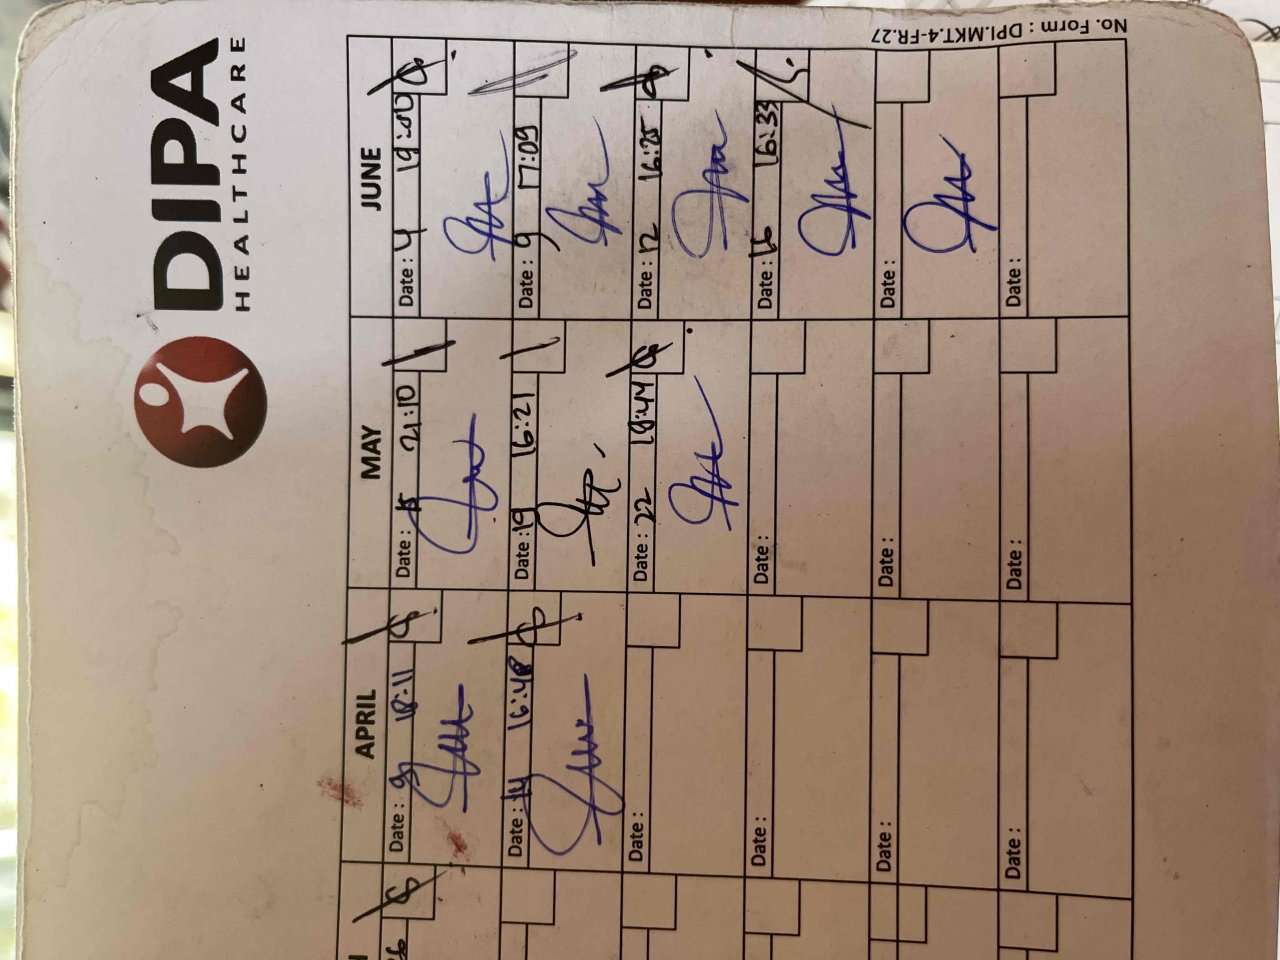 DIPA
HEALTHCARE
No. Form : DPI.MKT.4-FR.27
APRIL
MAY
JUNE
Date : 9 18:11
Date : 15 21:10
Date : 4 19:00
Date : 14 16:48
Date : 19 16:21
Date : 9 17:09
Date :
Date : 22 18:44
Date : 12 16:25
Date :
Date :
Date : 16 16:33
Date :
Date :
Date :
Date :
Date :
Date :